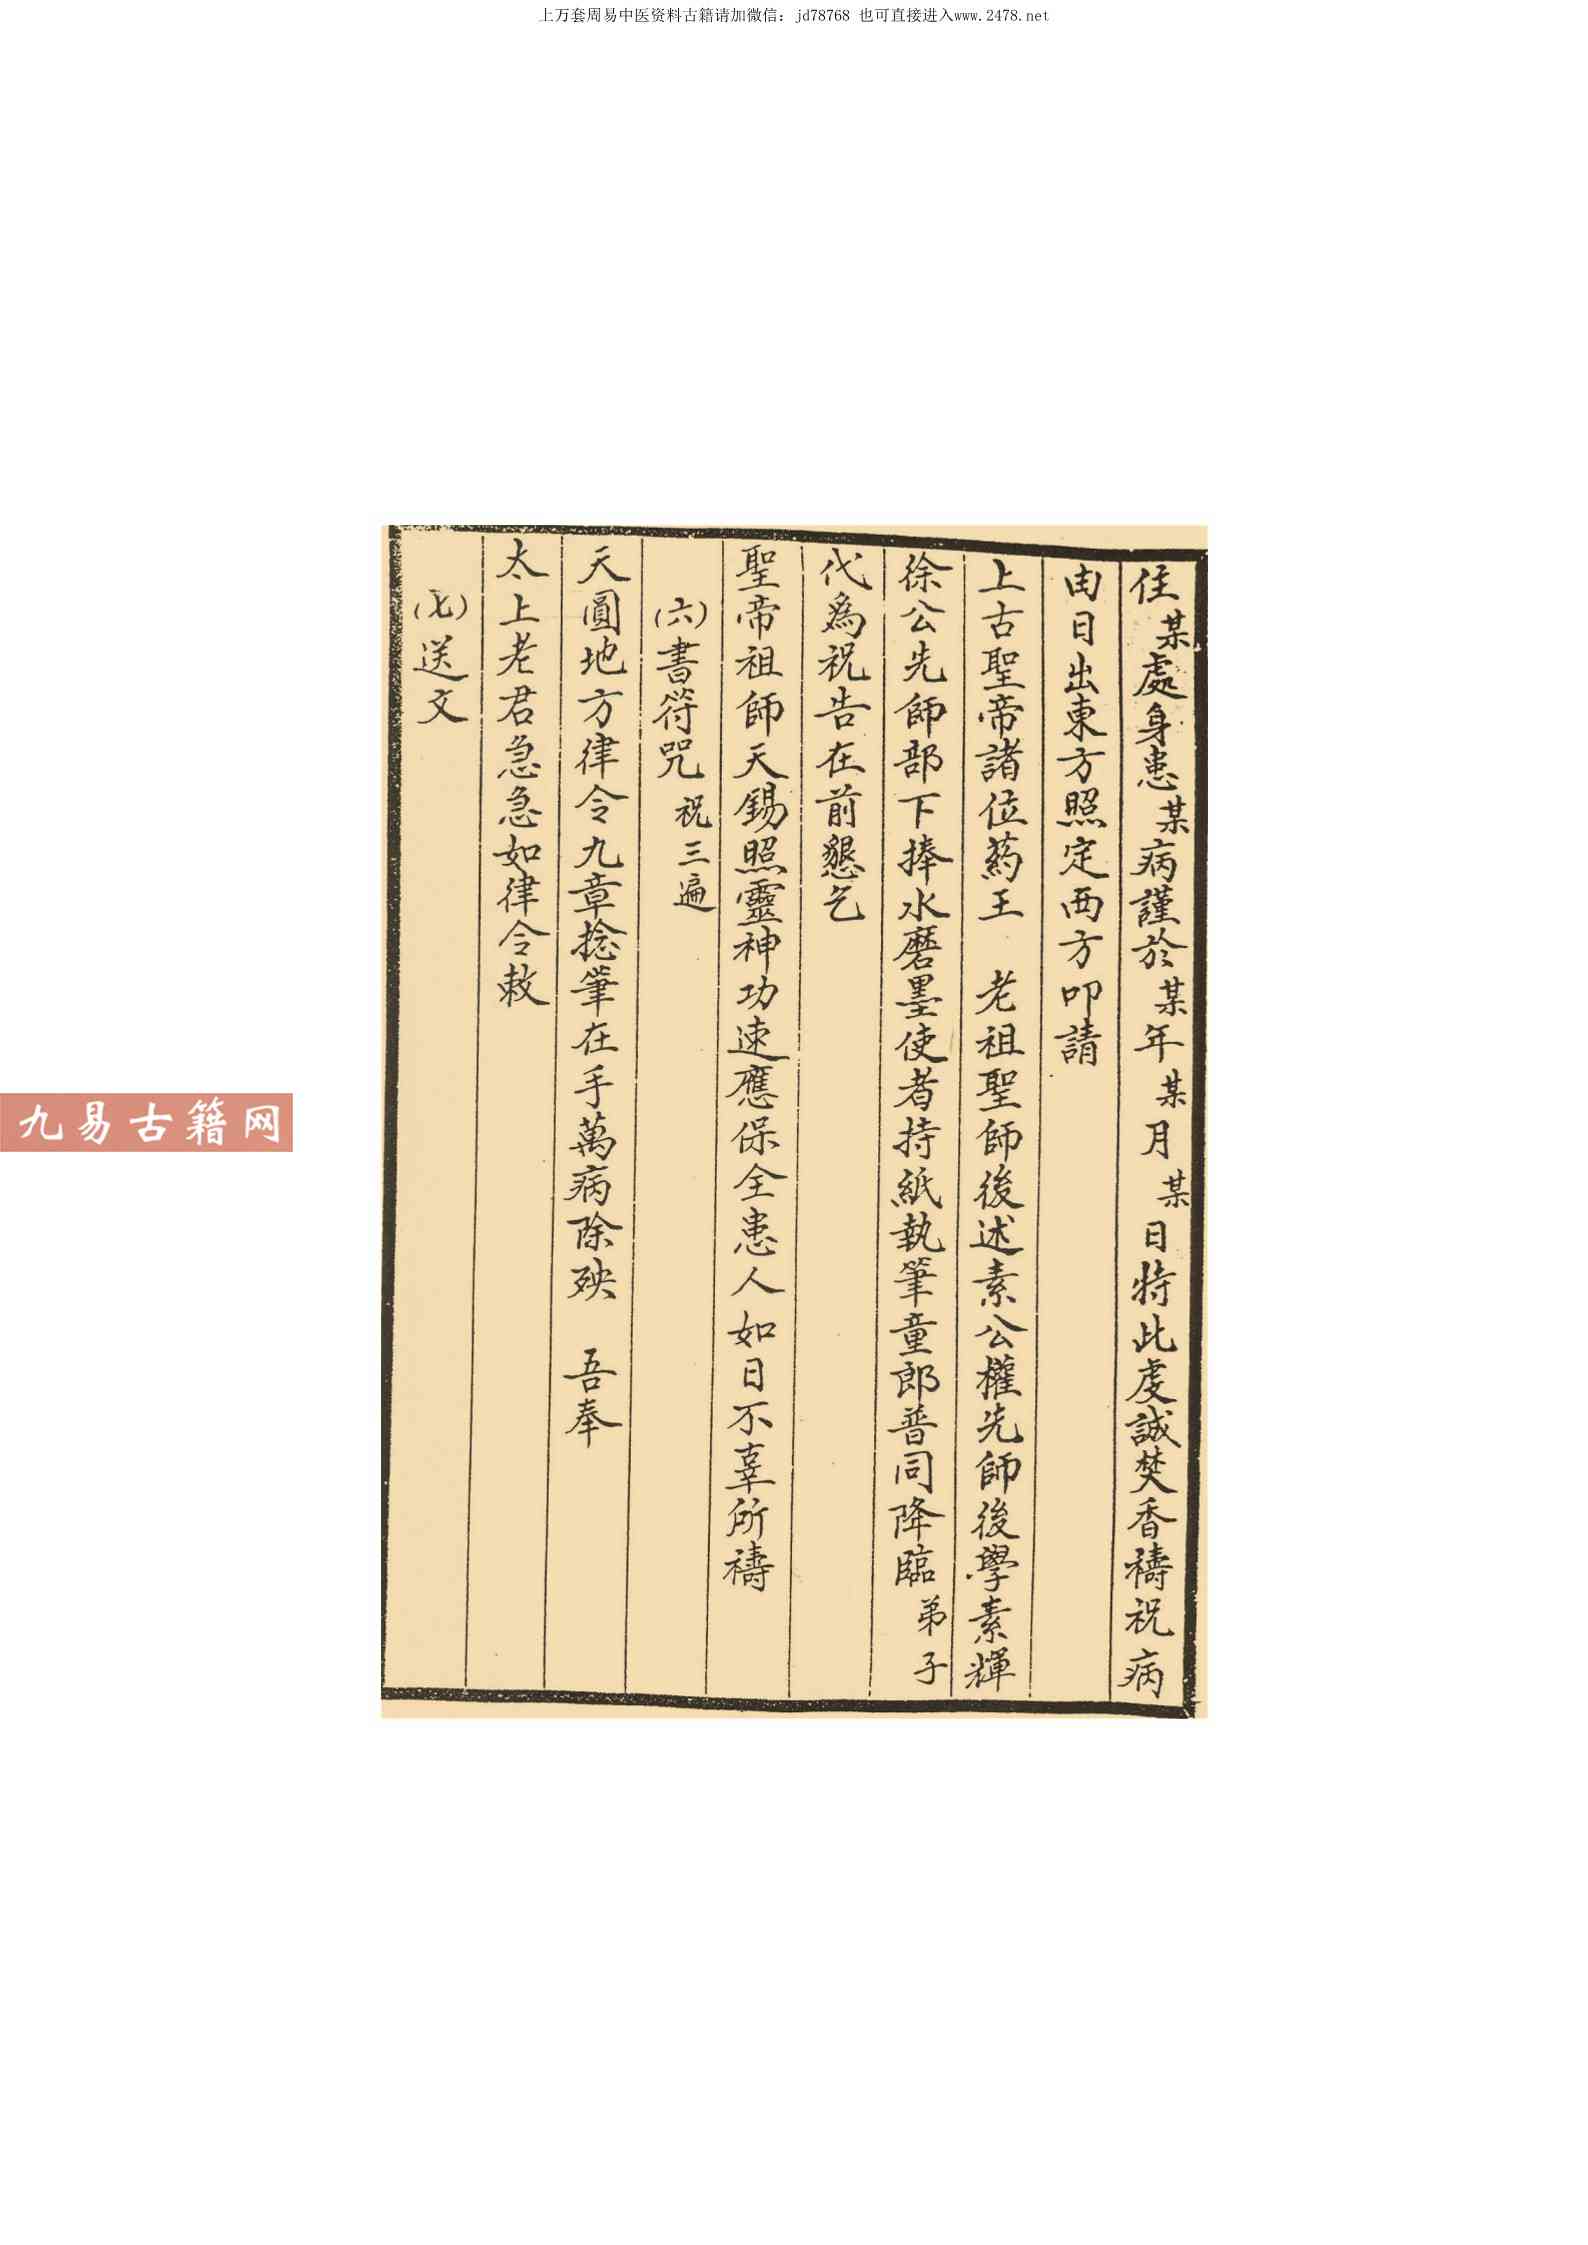 上万套周易中医资料古籍请加微信：jd78768 也可直接进入www.2478.net
住某處身患某病謹於某年某月某日特此虔誠焚香禱祝病
由日出東方照定西方叩請
上古聖帝諸位葯王　老祖聖師後述素公權先師後學素輝
徐公先師部下捧水磨墨使者持紙執筆童郎普同降臨弟子
代為祝告在前懇乞
聖帝祖師天錫照靈神功速應保全患人如日不辜所禱
(六)書符咒祝三遍
天圓地方律令九章捻筆在手萬病除殃　吾奉
太上老君急急如律令敕
(七)送文
九易古籍网